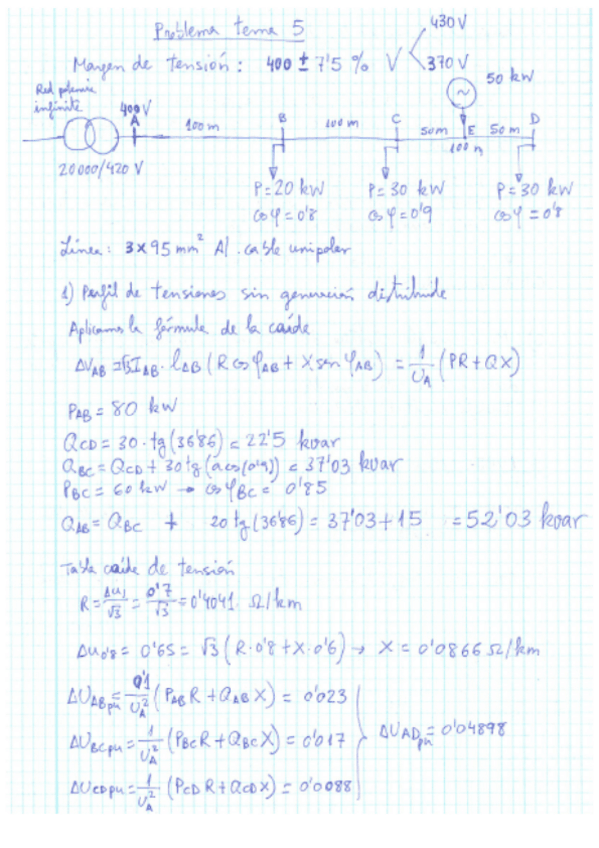 Problema tema 5
430 V
Margen de tensión: 400 ± 7'5 % V
370 V
Red potencia infinita
50 kW
400 V
A
B
C
E
D
100 m
100 m
50 m
50 m
100 m
20000/420 V
P=20 kW
cos φ=0'8
P=30 kW
cos φ=0'9
P=30 kW
cos φ=0'8
Línea: 3x95 mm² Al. cable unipolar
1) Perfil de tensiones sin generación distribuida
Aplicamos la fórmula de la caída
ΔV_AB = √3 I_AB · l_AB (R cos φ_AB + X sen φ_AB) = 1/U_A (PR + QX)
P_AB = 80 kW
Q_CD = 30 · tg (36'86) = 22'5 kvar
Q_BC = Q_CD + 30 tg (acos(0'9)) = 37'03 kvar
P_BC = 60 kW → cos φ_BC = 0'85
Q_AB = Q_BC + 20 tg (36'86) = 37'03 + 15 = 52'03 kvar
Tabla caída de tensión
R = Δu_1/√3 = 0'7/√3 = 0'4041 Ω/km
Δu_0'8 = 0'65 = √3 (R·0'8 + X·0'6) → X = 0'0866 Ω/km
ΔU_AB pu = 0'1/U_A² (P_AB R + Q_AB X) = 0'023
ΔU_BC pu = 1/U_A² (P_BC R + Q_BC X) = 0'017
ΔU_AD pu = 0'04898
ΔU_CD pu = 1/U_A² (P_CD R + Q_CD X) = 0'0088